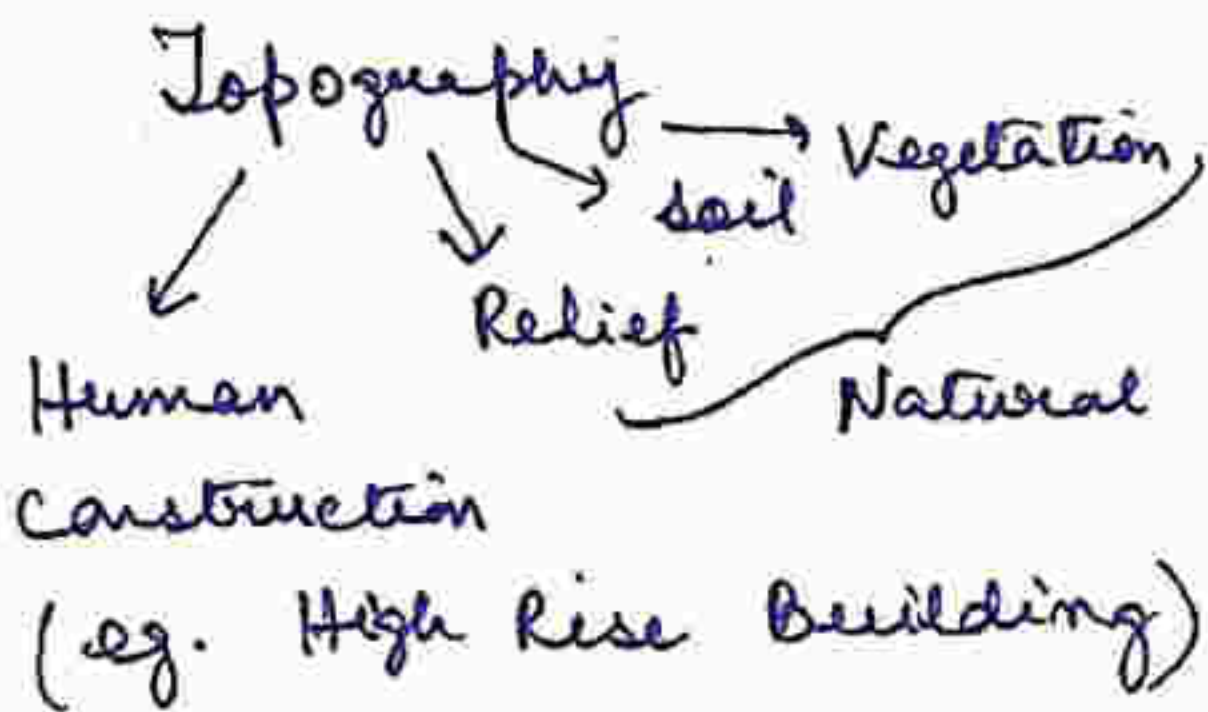 Topography
Vegetation
soil
Relief
Natural
Human
construction
(eg. High Rise Building)